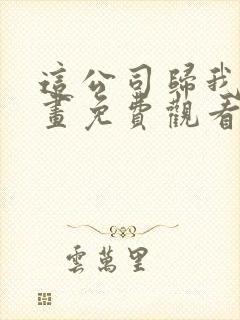 這公司歸我
畫免費觀看
雲萬里